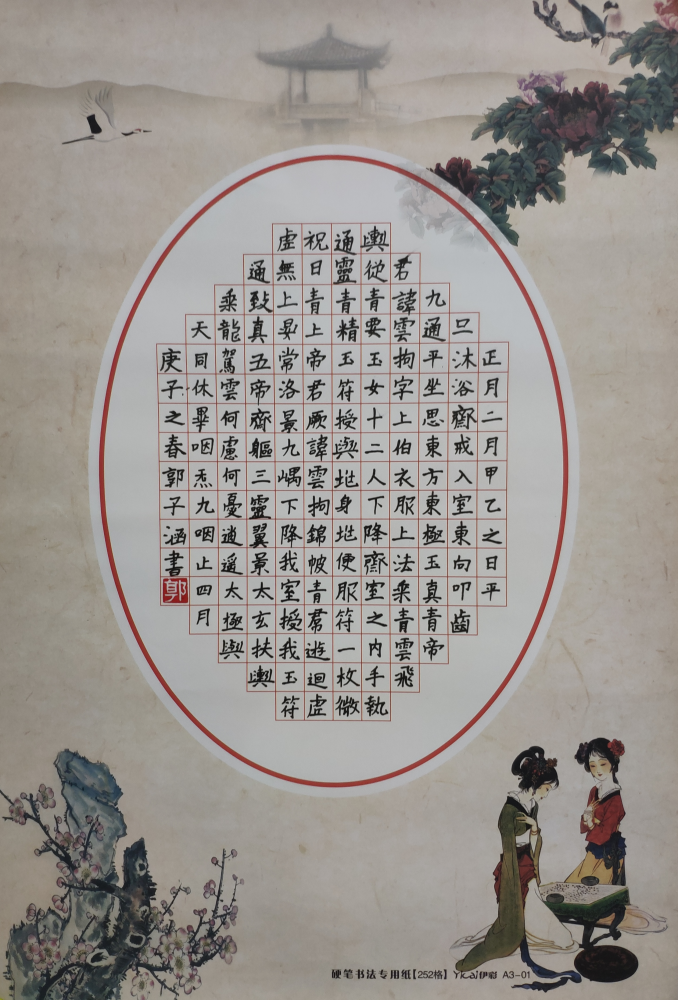 正月二月甲乙之日平
旦沐浴齋戒入室東向叩齒
九通平坐思東方東極玉真青帝
君諱雲拘字上伯衣服上法乘青雲飛
輿從青要玉女十二人下降齋室之内手執
通靈青精玉符授與地身地便服符一枚微
祝日青上帝君厥諱雲拘錦帔青帬遊迴虛
虛無上晏常洛景九嵎下降我室授我玉符
通致真五帝齊軀三靈翼景太玄扶輿
乘龍駕雲何慮何憂逍遥太極與
天同休畢咽炁九咽止四月
庚子之春郭子涵書
郭
硬笔书法专用纸【252格】 Yicai伊彩 A3-01